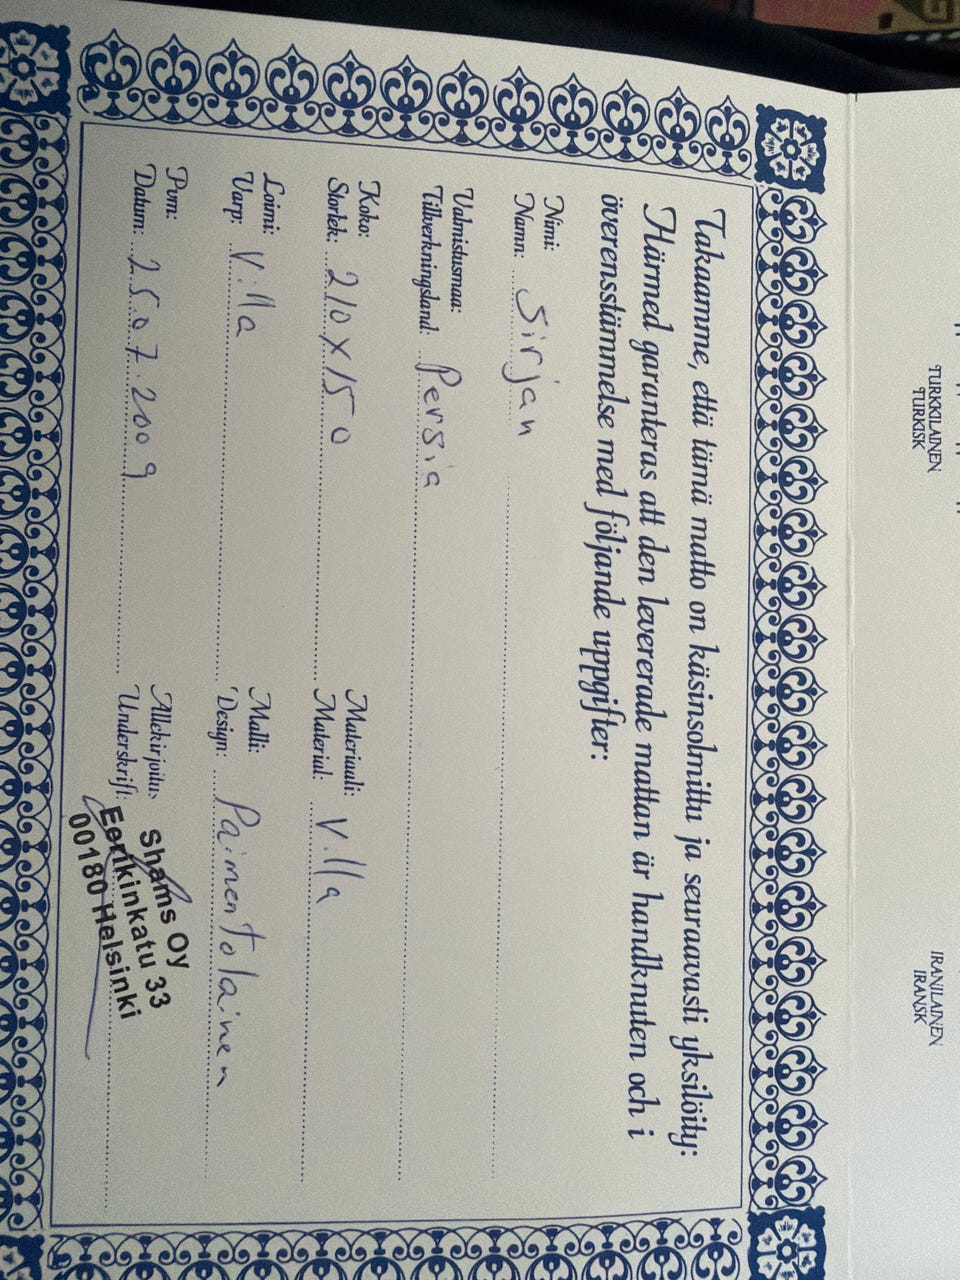 TURKKILAINEN
TURKISK
IRANILAINEN
IRANSK
Takaamme, että tämä matto on käsinsolmittu ja seuraavasti yksilöity:
Härmed garanteras att den levererade mattan är handknuten och i
överensstämmelse med följande uppgifter:
Nimi:
Namn: Sirjan
Valmistusmaa:
Tillverkningsland: Persia
Koko:
Storlek: 210 x 150
Materiaali:
Material: Villa
Loimi:
Varp: Villa
Malli:
Design: Paimentolainen
Pvm:
Datum: 25.07.2009
Allekirjoitus:
Underskrift:
Shams Oy
Eerikinkatu 33
00180 Helsinki